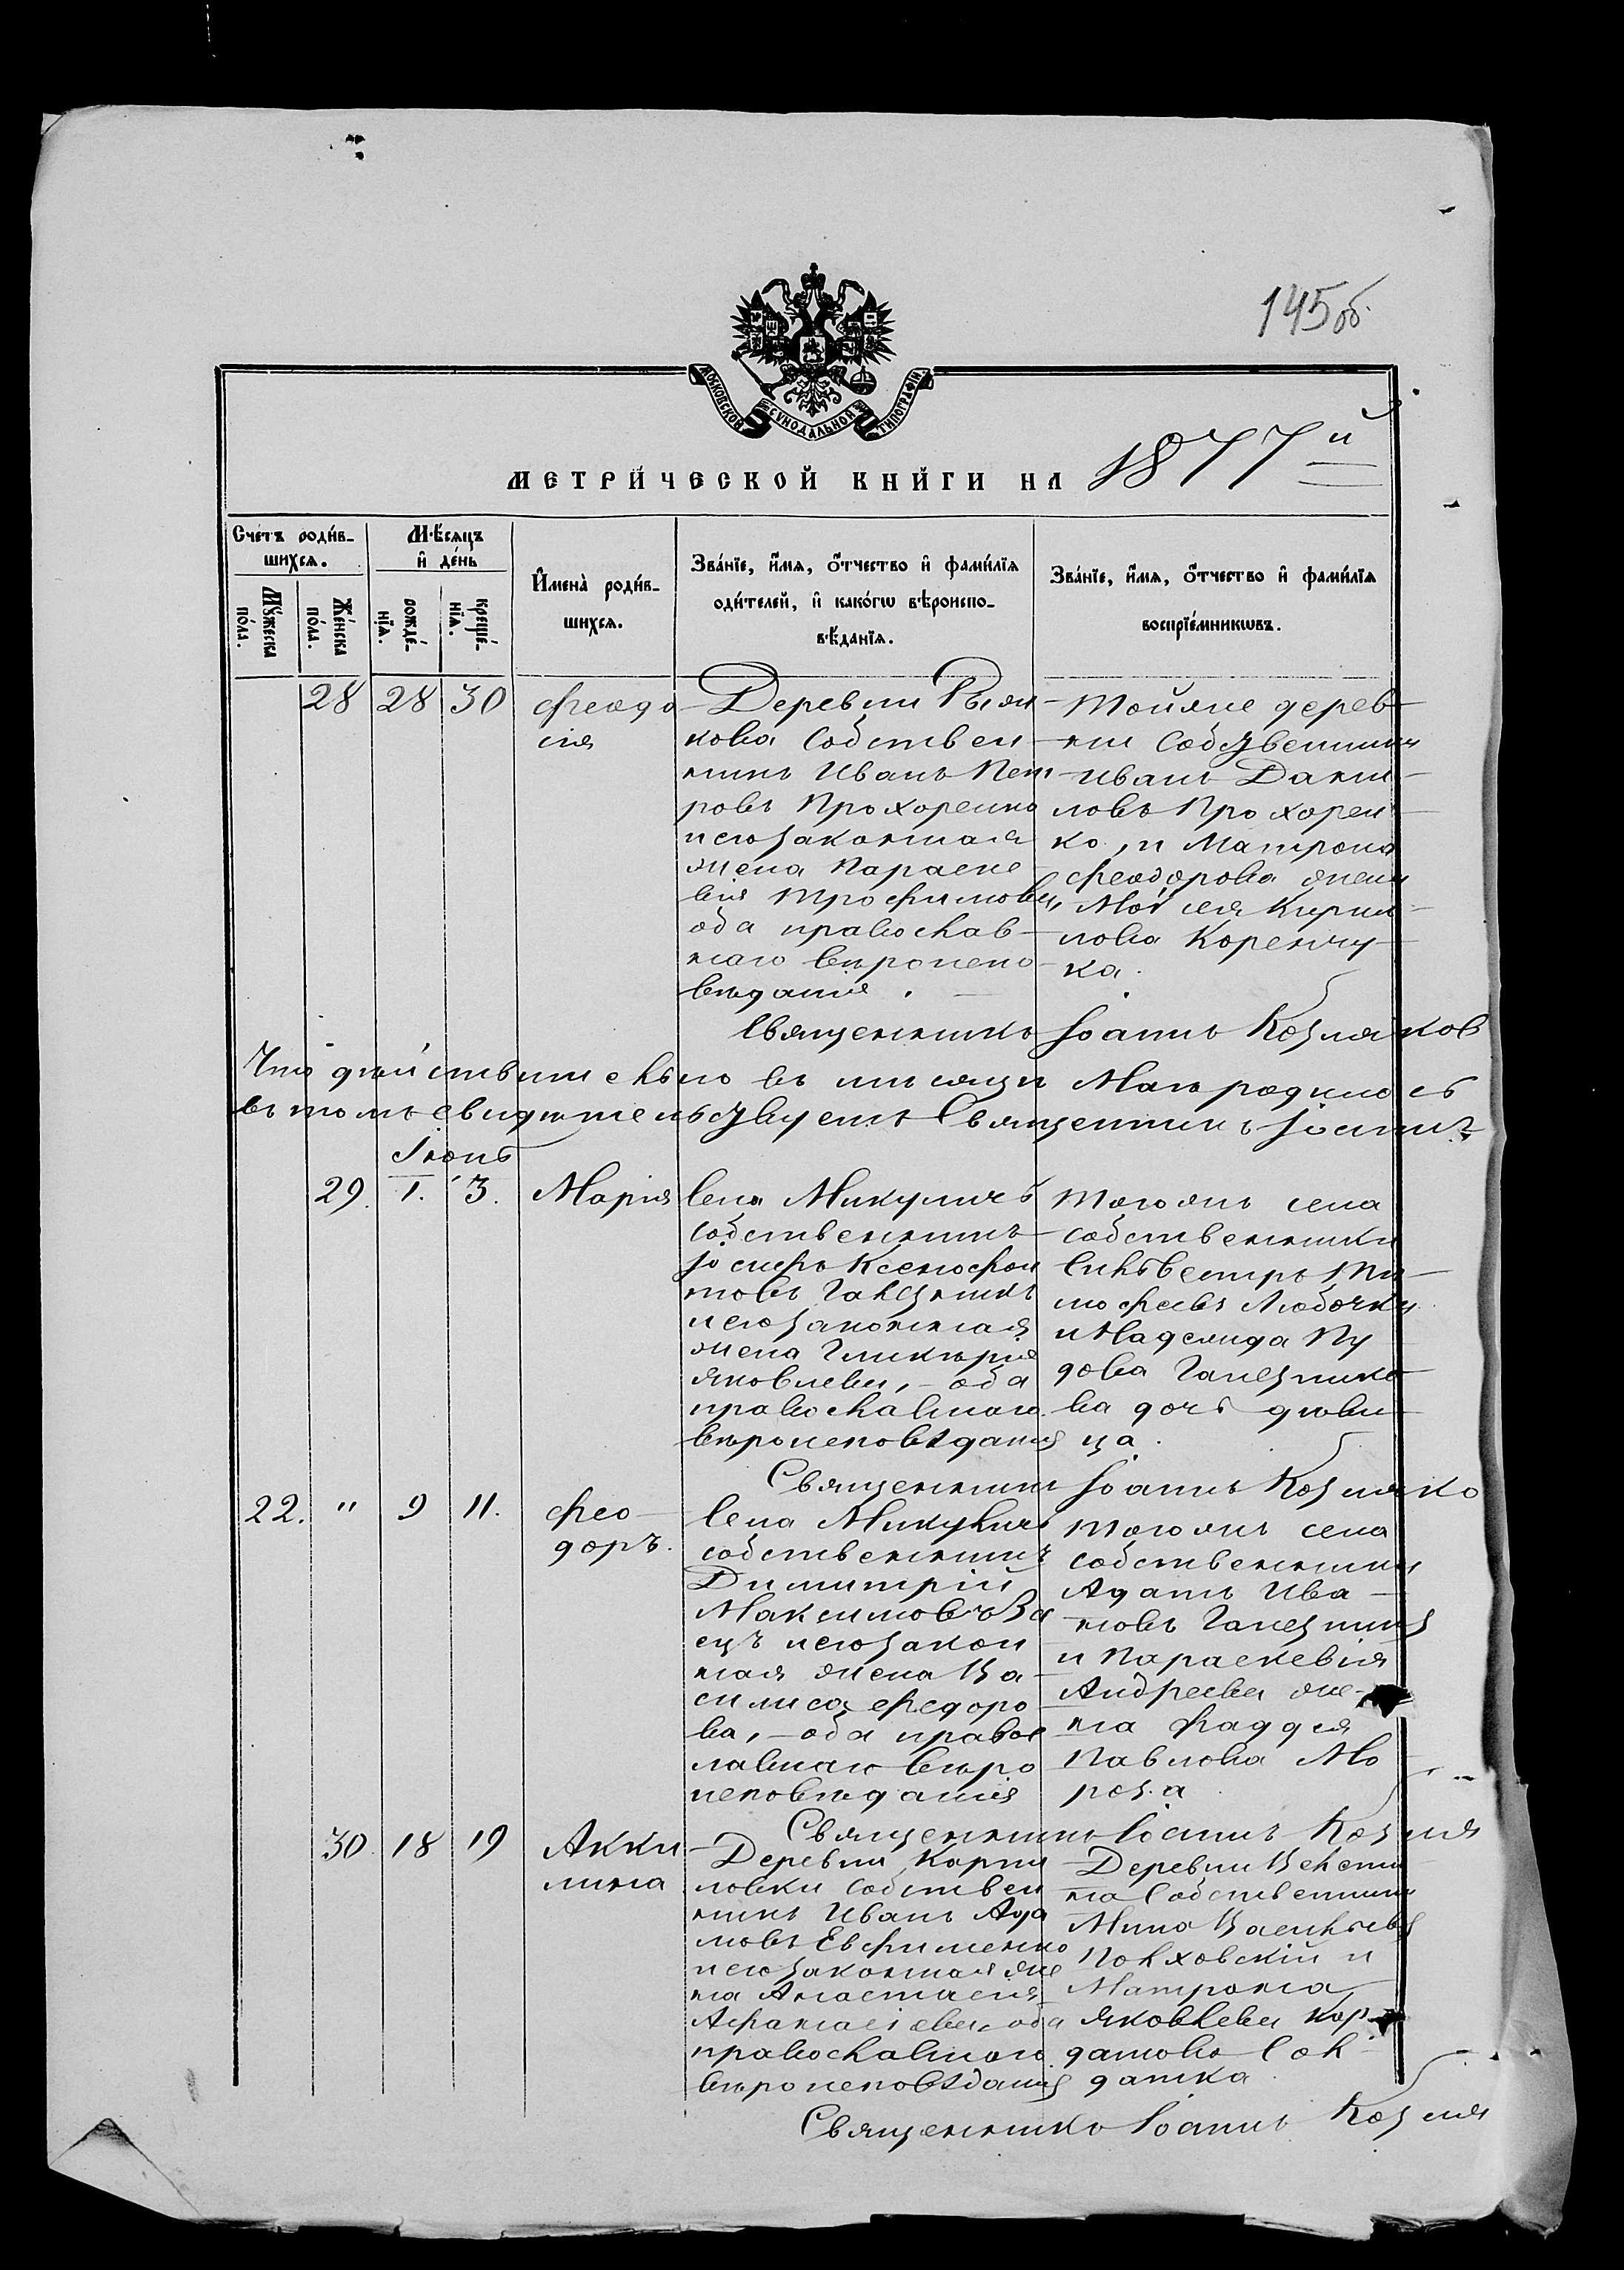 145 об.
МОСКОВСКОЙ СѴНОДАЛЬНОЙ ТИПОГРАФІИ
МЕТРИЧЕСКОЙ КНИГИ НА 1877й
Счетъ родив-
шихся.
Мѣсяцъ
и день
Имена родив-
шихся.
Званіе, имя, отчество и фамилія
одителей, и какогѡ вѣроиспо-
вѣданія.
Званіе, имя, отчество и фамилія
воспріемникѡвъ.
Мужеска
пола.
Женска
пола.
рожде-
нія.
креще-
нія.
28 28 30
Феодо
сія
Деревни
кова собствен
никъ Иванъ Пет
ровъ Прохоренко
и его законная
жена Параске
вія Трофимова,
оба православ-
наго вѣроиспо
вѣданія.
Тойже дерев-
ни собственники
Иванъ Дани-
ловъ Прохорен-
ко, и Матрона
Феодорова жена
Моѵсея Кирил-
лова Коренчу-
ка.
Священникъ Іоаннъ Козляков
Что дѣйствительно въ мѣсяцѣ Маѣ родилось
въ томъ свидѣтельствуетъ Священникъ Іоаннъ
Іюнь
29. 1. 3. Марія
Села Микуличъ
собственникъ
Іосифъ Ксенофон
товъ Галезникъ
и его законная
жена Гликерія
Яковлева, - оба
православнаго
вѣроисповѣданія
Тогожъ села
собственники
Сильвестръ Ти-
мофеевъ Любочка
и Надежда Пу
дова Галезнико
ва дочь дѣви-
ца.
Священникъ Іоаннъ Козляко
22. " 9 11.
Фео-
доръ.
Села Микуличъ
собственникъ
Димитрій
Максимовъ За
ецъ и его закон
ная жена Ва-
силиса Федоро
ва, - оба правос
лавнаго вѣро
исповѣданія
Тогожъ села
собственники
Адамъ Ива-
новъ Галезникъ
и Параскевія
Андреева же-
на Фаддея
Павлова Мо
роза
Священникъ Іоаннъ Козля
30 18 19
Акки
лина
Деревни Корни
ловки собствен
никъ Иванъ Ада
мовъ Евфименко
и его законная же
на Анастасія
Афанасіева, оба
православнаго
вѣроисповѣданія
Деревни Велени
на Собственникъ
Мина Васильевъ
Польховскій и
Матрона
Яковлева Кор-
датова Сол-
датка
Священникъ Іоаннъ Козля